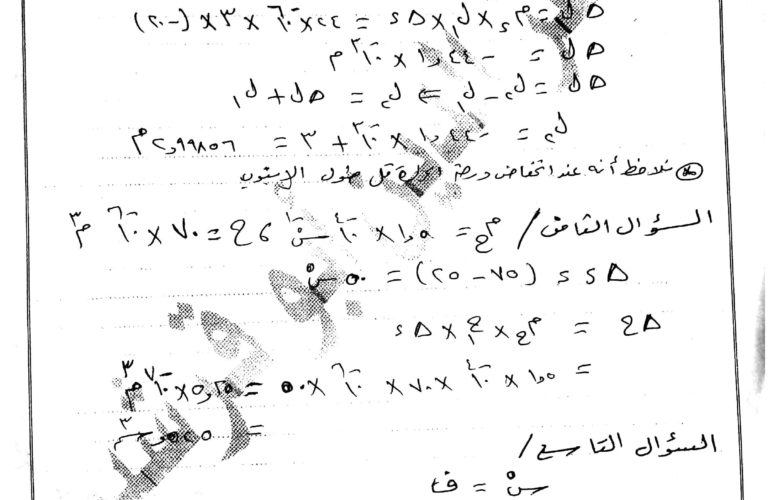 Δل = م × ل₁ × Δد = ٢٤ × ١٠⁻⁶ × ٣ × (-٢٠)
Δل = -١,٤٤ × ١٠⁻³ م
Δل = ل₂ - ل₁ ⇒ ل₂ = Δل + ل₁
ل₂ = -١,٤٤ × ١٠⁻³ + ٣ = ٢,٩٩٨٥٦ م
نلاحظ أنه عند انخفاض درجة الحرارة قل طول الإنبوب
السؤال الثامن / مح = ١,٥ × ١٠⁻⁴ س⁻¹ ، ح = ٧٠ × ١٠⁻⁶ م³
Δد = (٧٥ - ٢٥) = ٥٠ س°
Δح = مح × ح₁ × Δد
= ١,٥ × ١٠⁻⁴ × ٧٠ × ١٠⁻⁶ × ٥٠ = ٥,٢٥ × ١٠⁻⁷ م³
=
السؤال التاسع /
س° = ف°